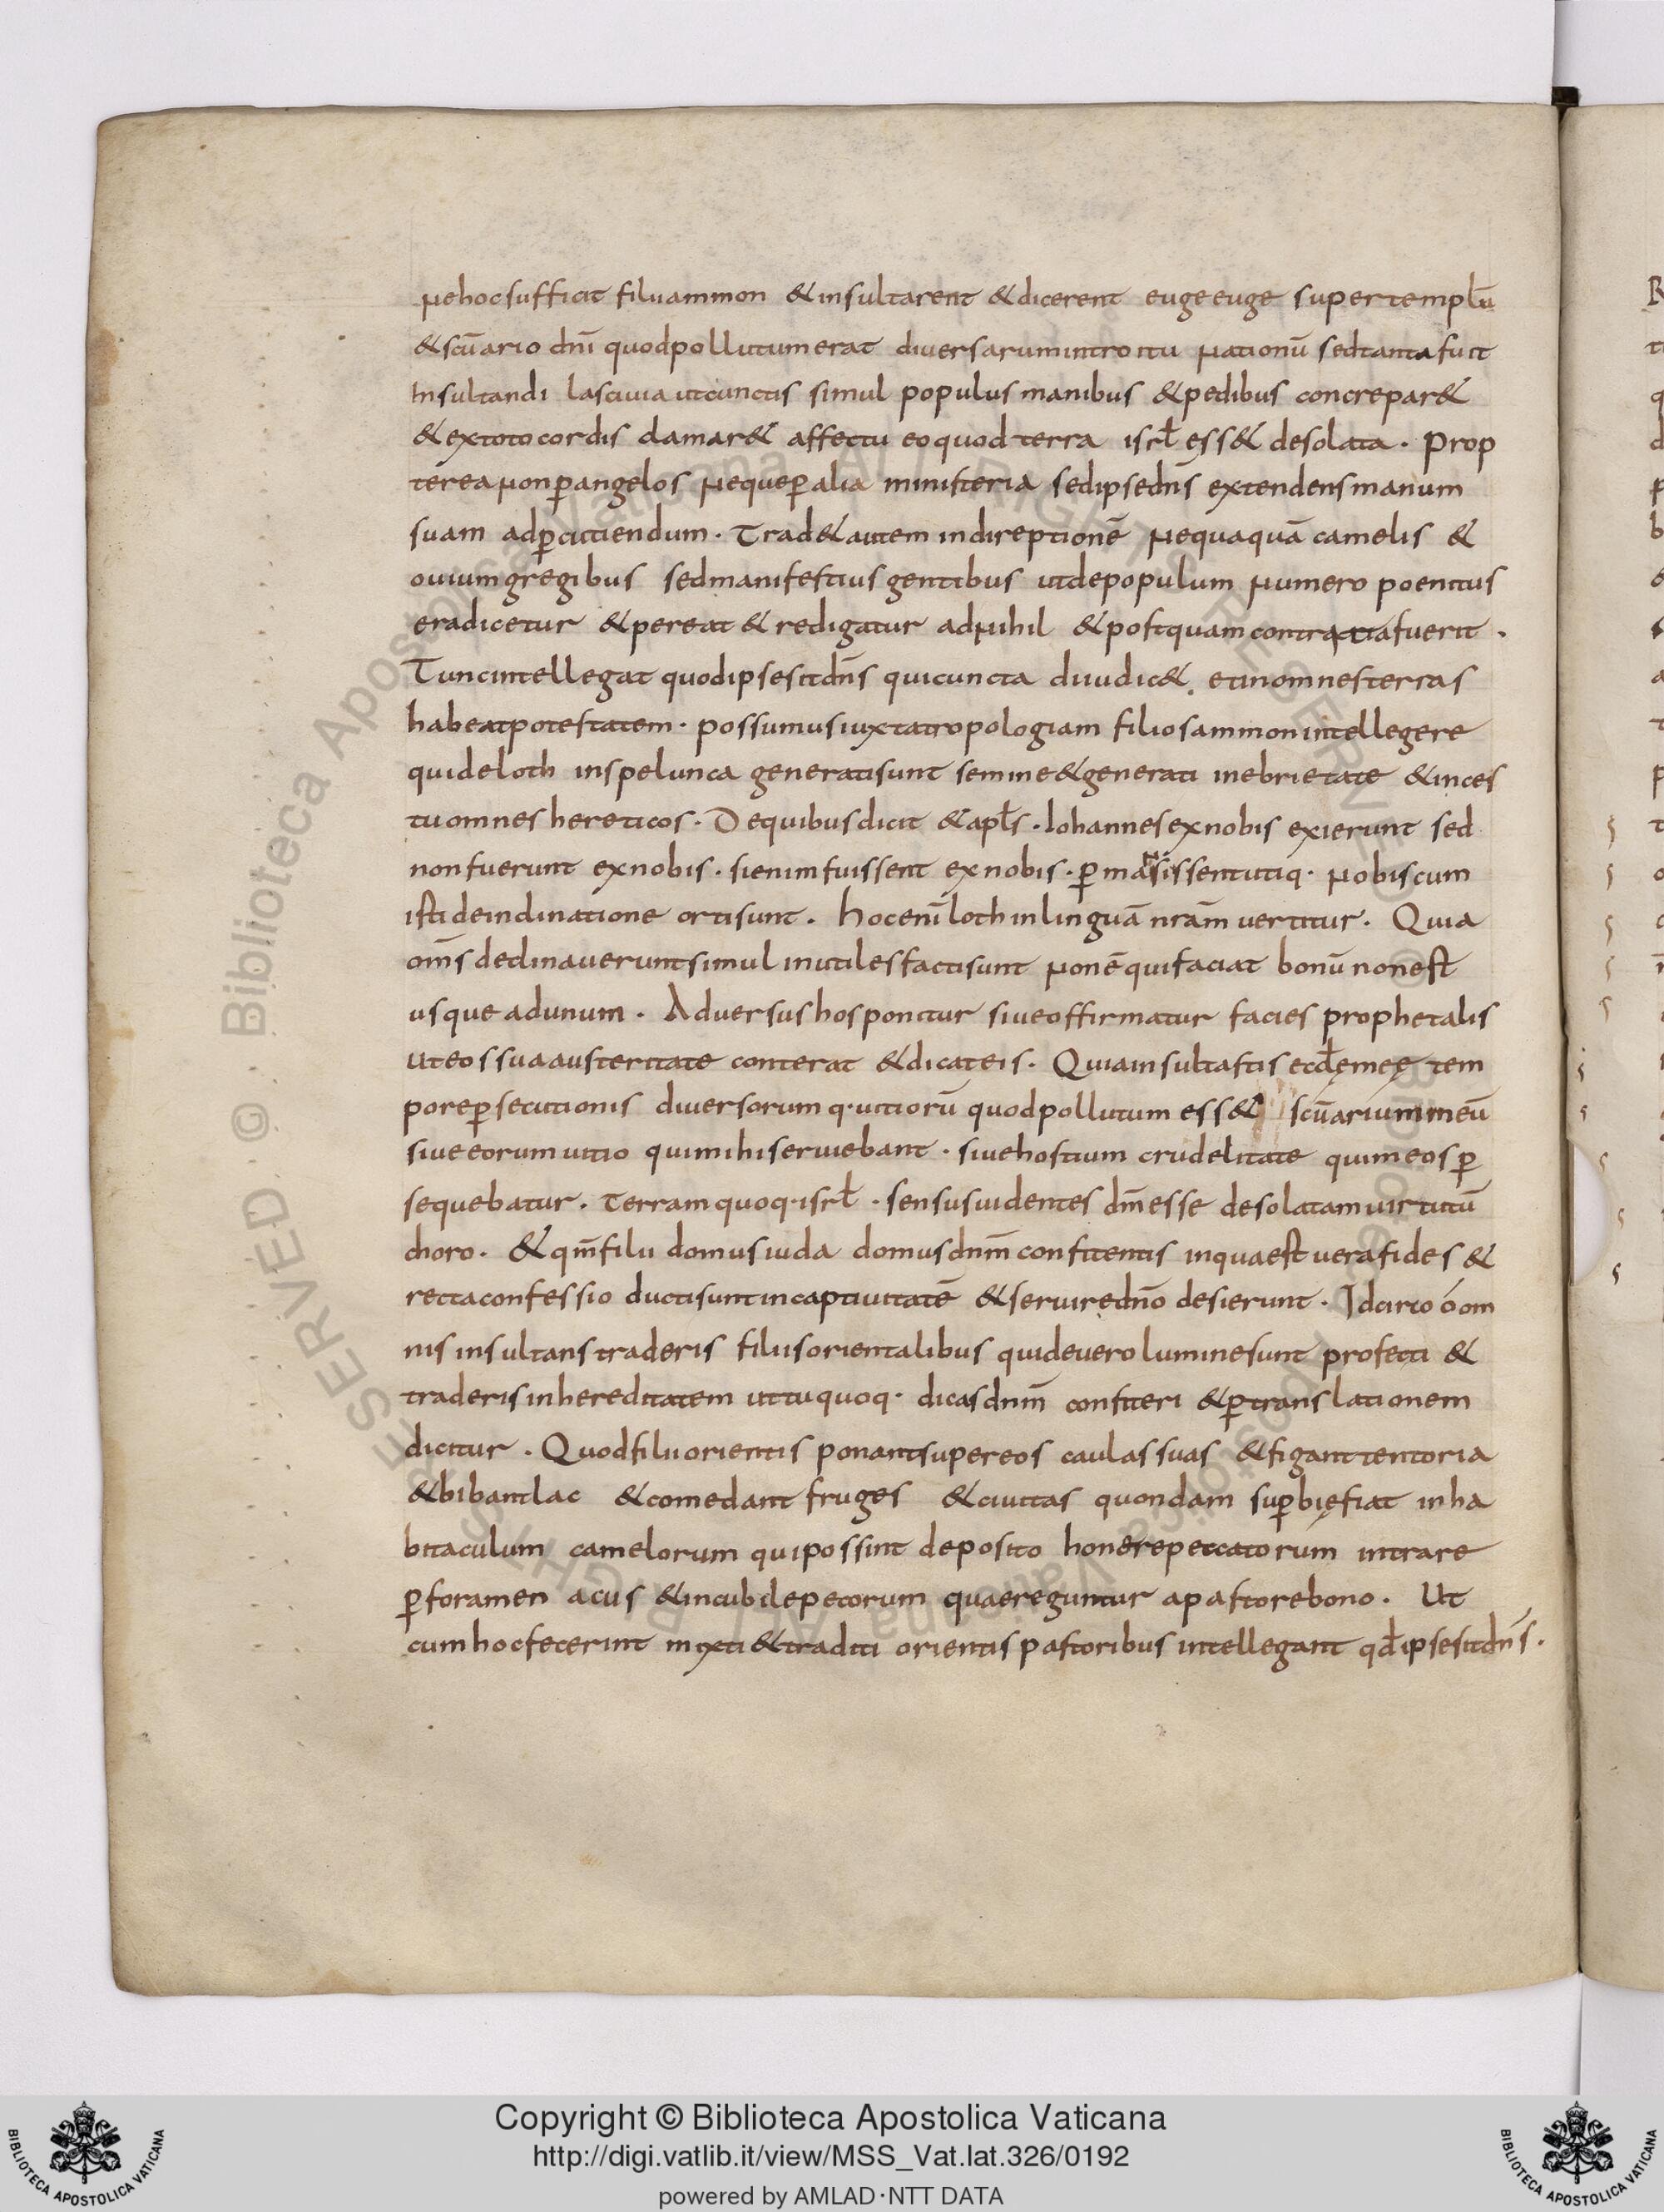 ne hoc sufficit filii ammon & insultarent & dicerent euge euge super templū
& scūario dn̄i quod pollutum erat diuersarum introitu nationū sed tanta fuit
Insultandi lasciuia ut cunctis simul populus manibus & pedibus concrepar&
& ex toto cordis clamar& affectu eo quod terra isrl̄ ess& desolata · Prop
terea non ꝑ angelos neque ꝑ alia ministeria sed ipse dn̄s extendens manum
suam ad ꝑcutiendum · Trad& autem in direptionē nequaquā camelis &
ouium gregibus sed manifestius gentibus ut de populum numero poenitus
eradicetur & pereat & redigatur ad nihil & postquam contracta fuerit ·
Tunc intellegat quod ipse sit dn̄s qui cuncta diiudic& et in omnes terras
habeat potestatem · possumus iuxta tropologiam filios ammon intellegere
qui de loth in spelunca generati sunt semine & generati in ebrietate & inces
tu omnes hereticos · De quibus dicit & apl̄s · Iohannes ex nobis exierunt sed
non fuerunt ex nobis · si enim fuissent ex nobis · ꝑmansissent utiq· nobiscum
isti de inclinatione orti sunt · hoc enī loth in linguā nrām uertitur · Quia
om̄s declinauerunt simul inutiles facti sunt non ē qui faciat bonū non est
usque ad unum · Aduersus hos ponitur siue offirmatur facies prophetalis
ut eos sua austeritate conterat & dicat eis · Quia insultastis eccl̄ę meę tem
pore ꝑsecutionis diuersorum q· uitiorū quod pollutum ess& scūarium meū
siue eorum uitio qui mihi seruiebant · siue hostium crudelitate qui meos ꝑ
sequebatur · Terram quoq· isrl̄ · sensus uidentes dm̄ esse desolatam uirtutū
choro · & qm̄ filii domus iuda domus dnm̄ confitentis in qua est uera fides &
recta confessio ducti sunt in captiuitatē & seruire dn̄o desierunt · Idcirco ó om
nis insultans traderis filiis orientalibus qui de uero lumine sunt profecti &
traderis in hereditatem ut tu quoq· dicas dnm̄ confiteri & ꝑ translationem
dicitur · Quod filii orientis ponant super eos caulas suas & figant tentoria
& bibant lac & comedant fruges & ciuitas quondam suꝑbię fiat in ha
bitaculum camelorum qui possint deposito honere peccatorum intrare
ꝑ foramen acus & in cubile pecorum quae reguntur a pastore bono · Ut
cum hoc fecerint mixti & traditi orientis pastoribus intellegant qd̄ ipse sit dn̄s ·
Copyright © Biblioteca Apostolica Vaticana
http://digi.vatlib.it/view/MSS_Vat.lat.326/0192
powered by AMLAD·NTT DATA